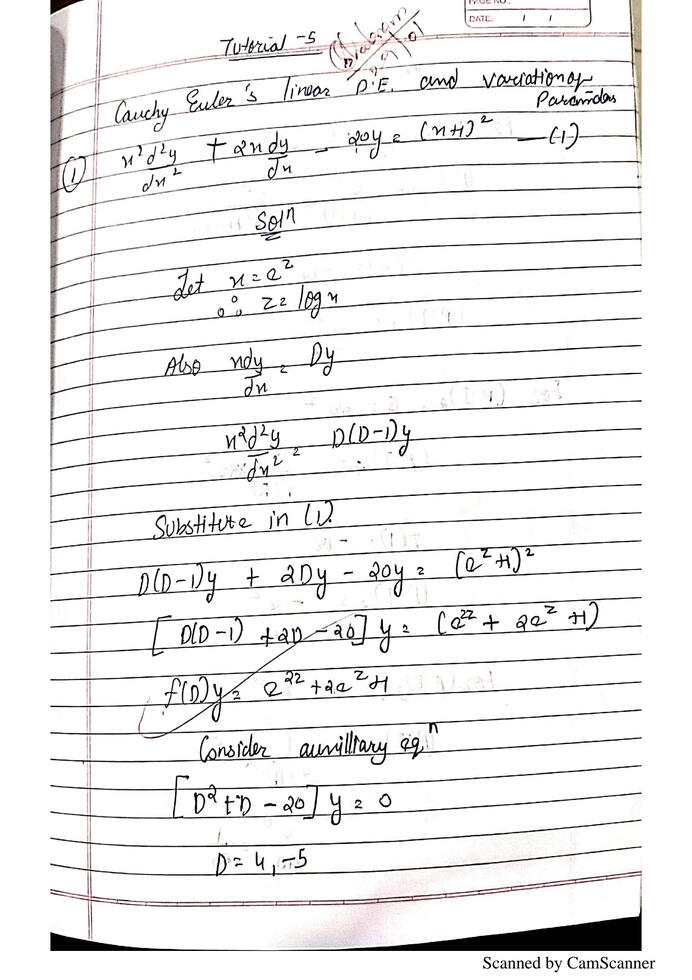 PAGE NO.
DATE: / /
Tutorial -5
Cauchy Euler's linear D.E. and variation of
Parameters
① x²d²y/dx² + 2xdy/dx - 20y = (x+1)² —(1)
Solⁿ
Let x = e^z
∴ z = log x
Also xdy/dx = Dy
x²d²y/dx² = D(D-1)y
Substitute in (1).
D(D-1)y + 2Dy - 20y = (e^z +1)²
[D(D-1) + 2D - 20] y = (e^2z + 2e^z +1)
f(D)y = e^2z + 2e^z +1
Consider auxilliary eqⁿ
[D² + D - 20] y = 0
D = 4, -5
Scanned by CamScanner